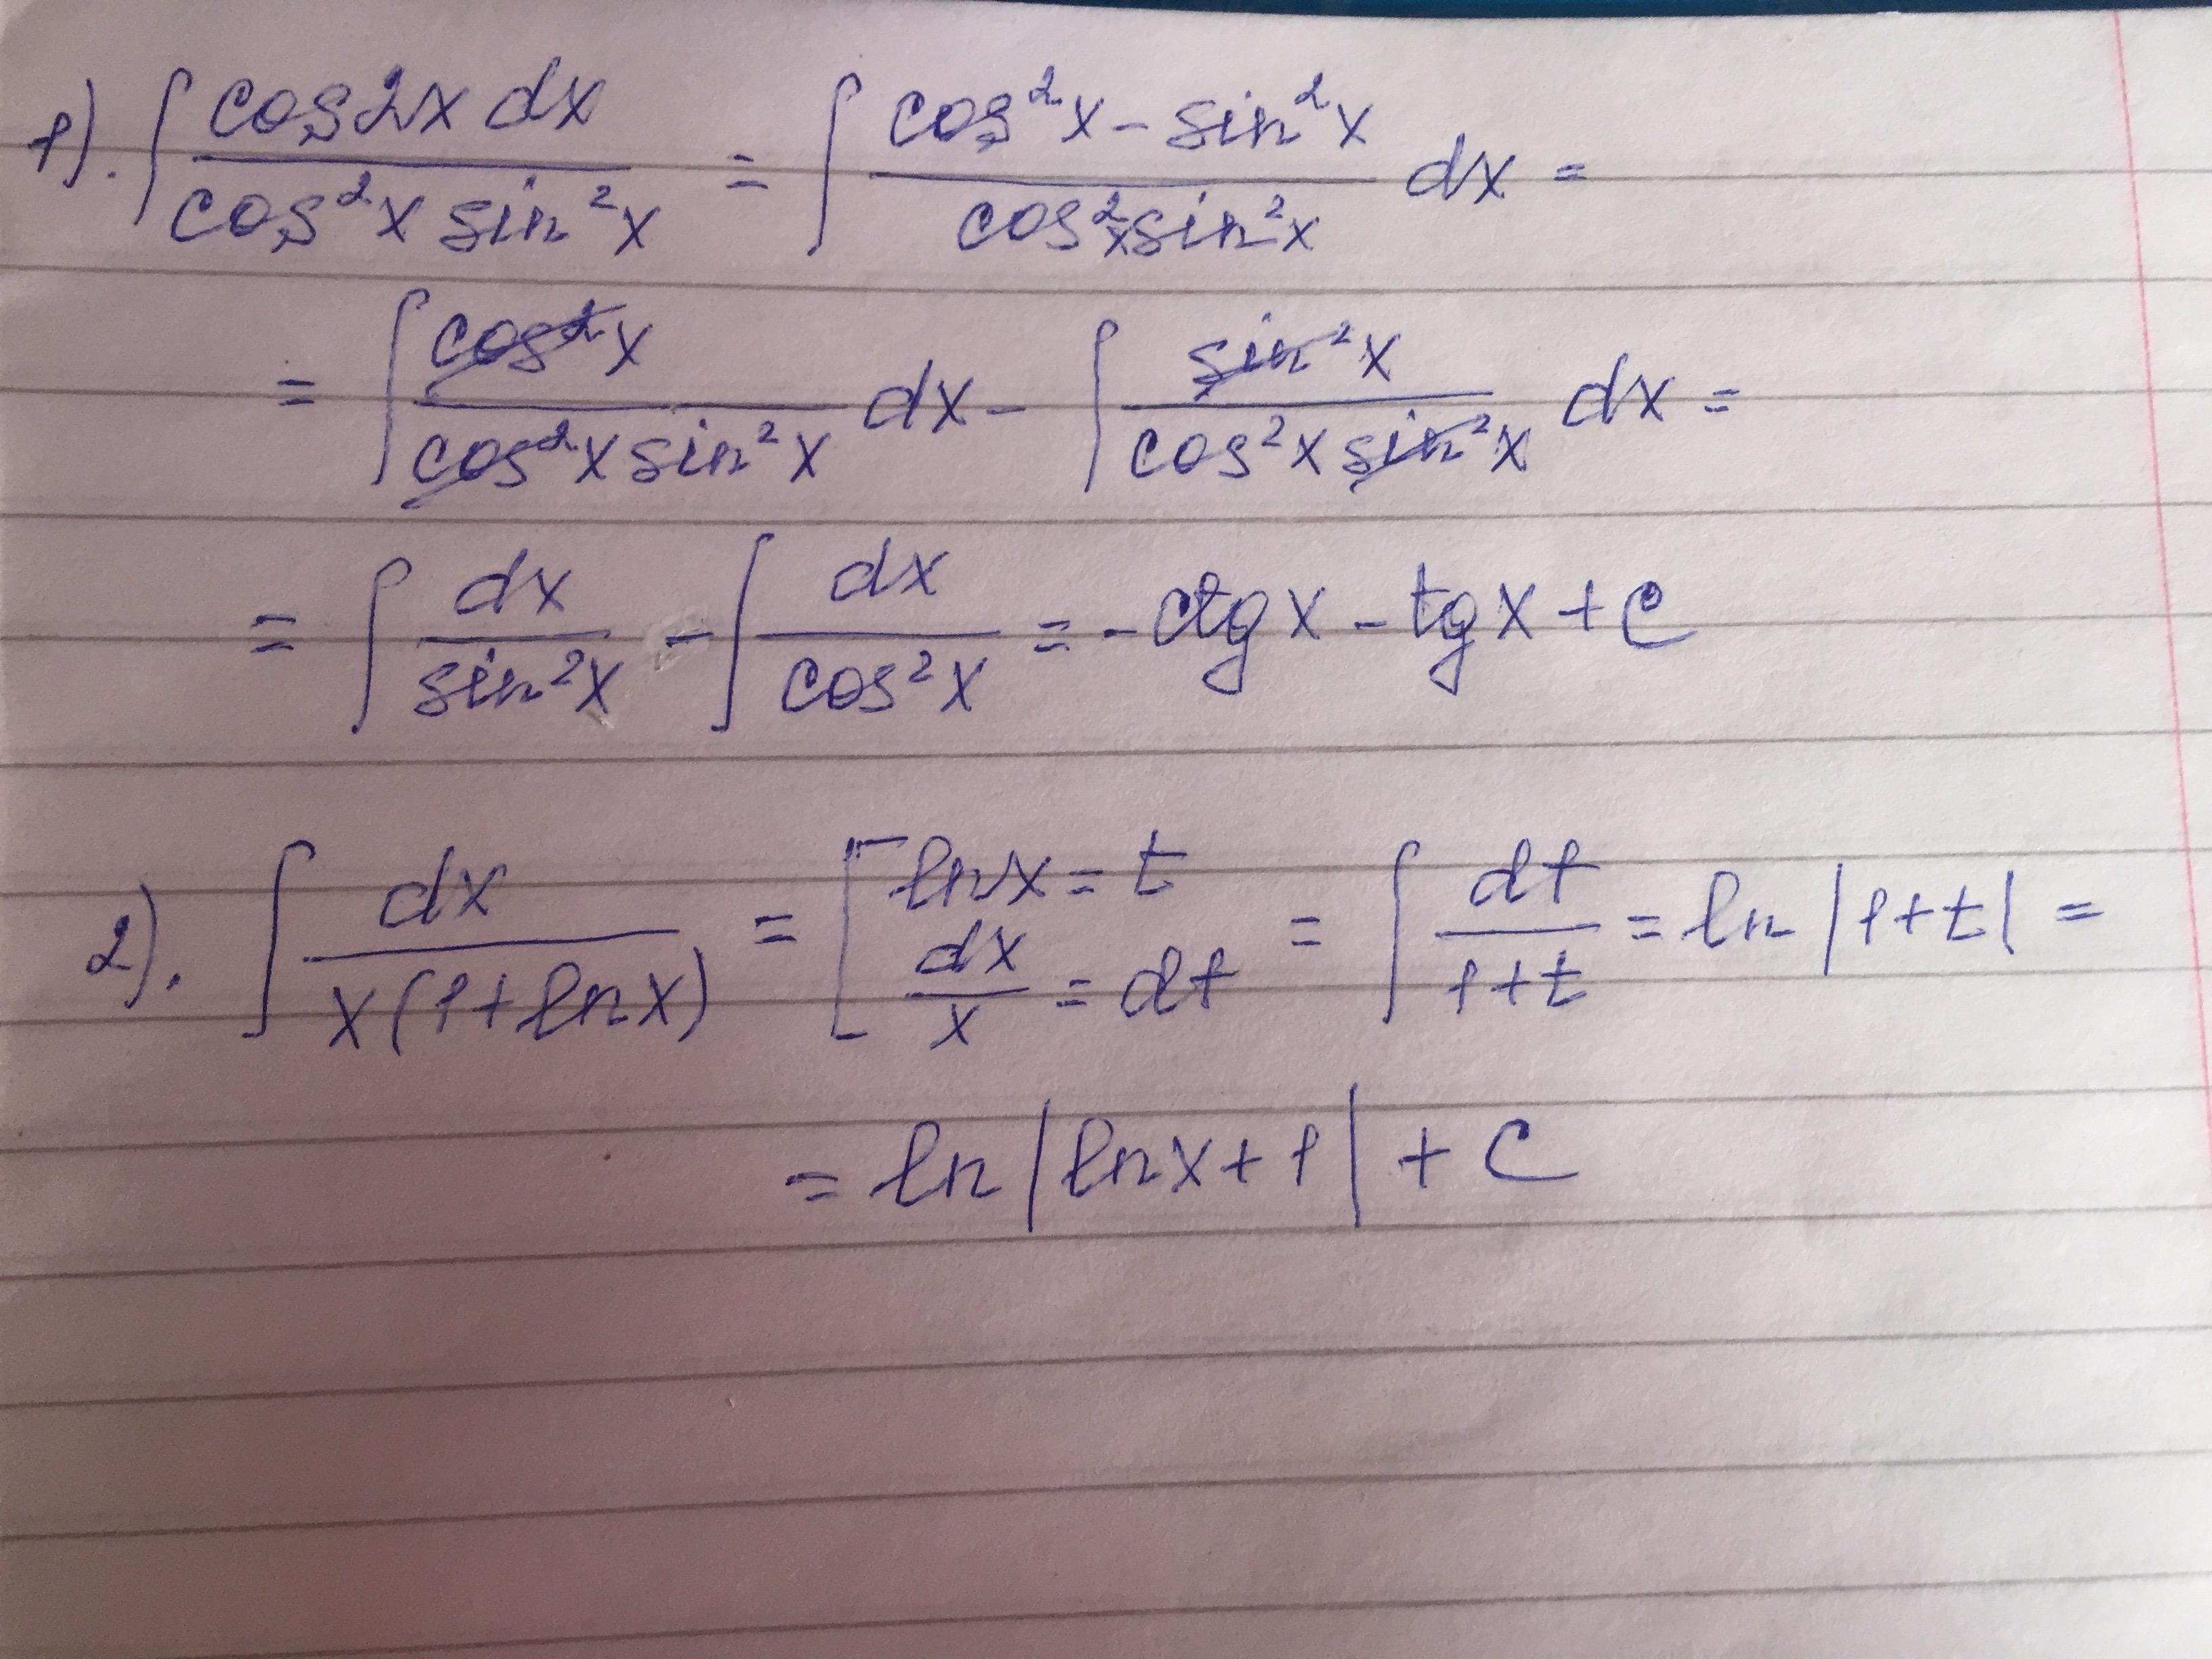 1). ∫ cos2x dx / cos²x sin²x = ∫ cos²x - sin²x / cos²x sin²x dx =
= ∫ cos²x / cos²x sin²x dx - ∫ sin²x / cos²x sin²x dx =
= ∫ dx / sin²x - ∫ dx / cos²x = - ctg x - tg x + C
2). ∫ dx / x(1+lnx) = [ lnx = t dx / x = dt = ∫ dt / 1+t = ln |1+t| =
= ln |lnx+1| + C